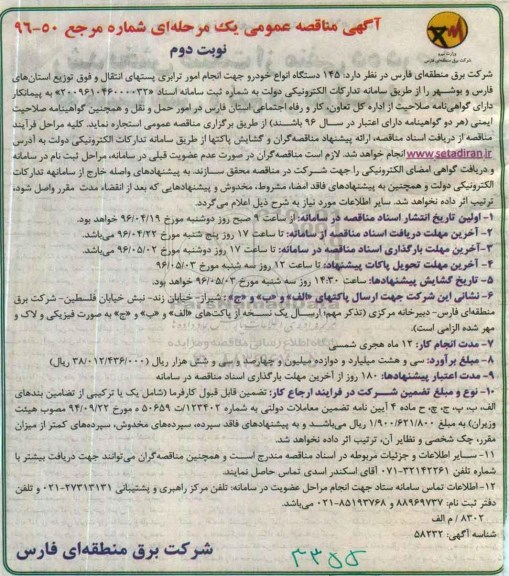 آگهی مناقصه عمومی یک مرحله‌ای شماره مرجع ۵۰-۹۶
نوبت دوم
وزارت نیرو
شرکت برق منطقه‌ای فارس
شرکت برق منطقه‌ای فارس در نظر دارد: ۱۴۵ دستگاه انواع خودرو جهت انجام امور ترابری پستهای انتقال و فوق توزیع استان‌های
فارس و بوشهر را از طریق سامانه تدارکات الکترونیکی دولت به شماره ثبت سامانه اسناد «۲۰۰۹۶۱۰۴۶۰۰۰۰۳۲» به پیمانکار
دارای گواهی‌نامه صلاحیت از اداره کل تعاون، کار و رفاه اجتماعی استان فارس در امور حمل و نقل و همچنین گواهینامه صلاحیت
ایمنی (هر دو گواهینامه دارای اعتبار در سال ۹۶ باشند) از طریق برگزاری مناقصه عمومی استجاره نماید. کلیه مراحل فرآیند
مناقصه از دریافت اسناد مناقصه، ارائه پیشنهاد مناقصه‌گران و گشایش پاکتها از طریق سامانه تدارکات الکترونیکی دولت به آدرس
www.setadiran.ir انجام خواهد شد. لازم است مناقصه‌گران در صورت عدم عضویت قبلی در سامانه، مراحل ثبت نام در سامانه
و دریافت گواهی امضای الکترونیکی را جهت شرکت در مناقصه محقق سازند. به پیشنهادهای واصله خارج از سامانهه تدارکات
الکترونیکی دولت و همچنین به پیشنهادهای فاقد امضا، مشروط، مخدوش و پیشنهادهایی که بعد از انقضاء مدت مقرر واصل شود،
ترتیب اثر داده نخواهد شد. سایر اطلاعات مورد نیاز به شرح ذیل اعلام می‌گردد.
۱- اولین تاریخ انتشار اسناد مناقصه در سامانه: از ساعت ۹ صبح روز دوشنبه مورخ ۹۶/۰۴/۱۹ خواهد بود.
۲- آخرین مهلت دریافت اسناد مناقصه از سامانه: تا ساعت ۱۷ روز پنج شنبه مورخ ۹۶/۰۴/۲۲ می‌باشد.
۳- آخرین مهلت بارگذاری اسناد مناقصه در سامانه: تا ساعت ۱۷ روز دوشنبه مورخ ۹۶/۰۵/۰۲ می‌باشد.
۴- آخرین مهلت تحویل پاکات پیشنهاد: تا ساعت ۱۲ روز سه شنبه مورخ ۹۶/۰۵/۰۳
۵- تاریخ گشایش پیشنهادها: ساعت ۱۴:۳۰ روز سه شنبه مورخ ۹۶/۰۵/۰۳ خواهد بود.
۶- نشانی این شرکت جهت ارسال پاکتهای «الف» و «ب» و «ج»: شیراز- خیابان زند- نبش خیابان فلسطین- شرکت برق
منطقه‌ای فارس- دبیرخانه مرکزی (تذکر مهم: ارسال یک نسخه از پاکت‌های «الف» و «ب» و «ج» به صورت فیزیکی و لاک و
مهر شده الزامی است).
۷- مدت انجام کار: ۱۲ ماه هجری شمسی
۸- مبلغ برآورد: سی و هشت میلیارد و دوازده میلیون و چهارصد وسی و شش هزار ریال (۳۸/۰۱۲/۴۳۶/۰۰۰ ریال)
۹- مدت اعتبار پیشنهادها: ۱۸۰ روز از آخرین مهلت بارگذاری اسناد مناقصه در سامانه
۱۰- نوع و مبلغ تضمین شرکت در فرایند ارجاع کار: تضمین قابل قبول کارفرما (شامل یک یا ترکیبی از تضامین بندهای
الف، ب، پ، ج، چ، ح ماده ۴ آیین نامه تضمین معاملات دولتی به شماره ۱۲۳۴۰۲/ت ۵۰۶۵۹ ه مورخ ۹۴/۰۹/۲۲ مصوب هیئت
وزیران) به مبلغ ۱/۹۰۰/۶۲۱/۸۰۰ ریال می‌باشد و به پیشنهادهای فاقد سپرده، سپرده‌های مخدوش، سپرده‌های کمتر از میزان
مقرر، چک شخصی و نظایر آن، ترتیب اثر داده نخواهد شد.
۱۱- سایر اطلاعات و جزئیات مربوطه در اسناد مناقصه مندرج است و همچنین مناقصه‌گران می‌توانند جهت دریافت بیشتر با
شماره تلفن ۳۲۱۴۲۲۶۱-۰۷۱ آقای اسکندر اسدی تماس حاصل نمایند.
۱۲- اطلاعات تماس سامانه ستاد جهت انجام مراحل عضویت در سامانه: تلفن مرکز راهبری و پشتیبانی ۲۷۳۱۳۱۳۱-۰۲۱ و تلفن
دفتر ثبت نام: ۸۸۹۶۹۷۳۷ و ۸۵۱۹۳۷۶۸-۰۲۱ می‌باشد.
۸۳۰۲ / م الف
شناسه آگهی: ۵۸۲۳۲
شرکت برق منطقه‌ای فارس
۳۳۵۵